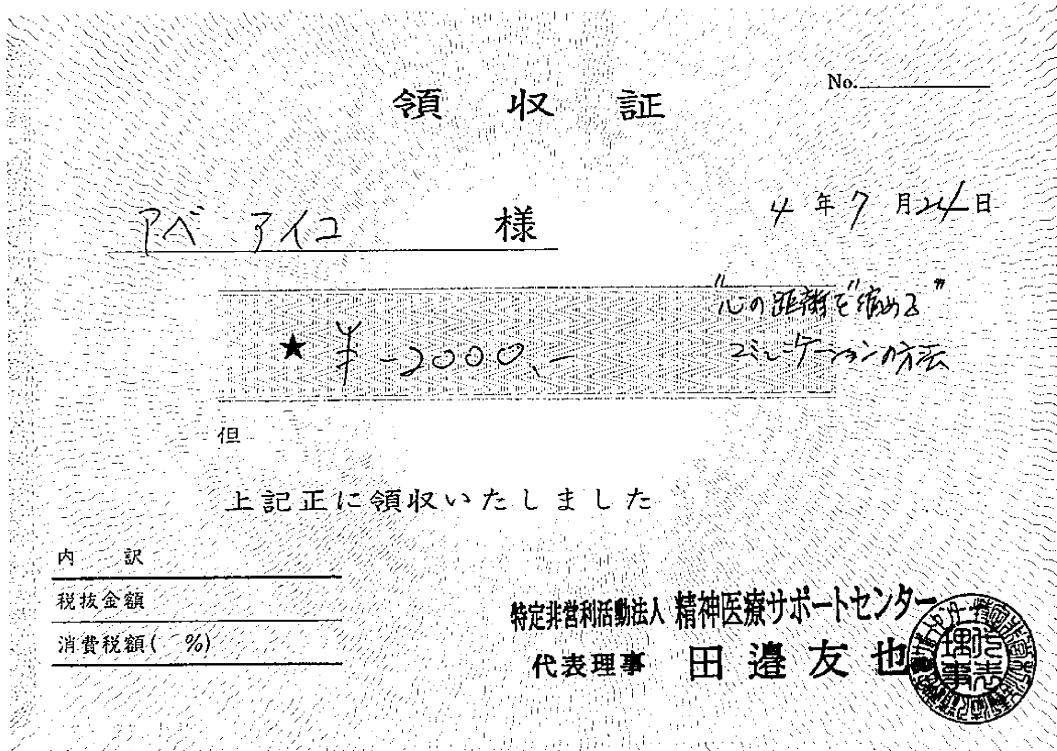 No.
領収証
アベ アイコ 様
4年7月24日
"心の距離を縮める"
コミュニケーションの方法
★ ¥-2000.-
但
上記正に領収いたしました
内 訳
税抜金額
消費税額( %)
特定非営利活動法人 精神医療サポートセンター
代表理事 田邉友也